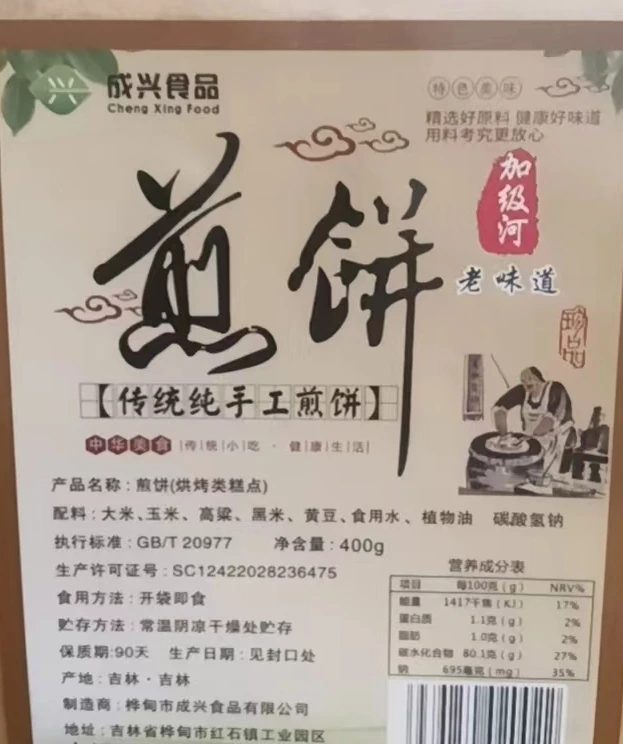 兴
成兴食品
Cheng Xing Food
特色美味
精选好原料 健康好味道
用料考究更放心
煎饼
加级河
老味道
珍品
【传统纯手工煎饼】
中华美食 |传|统|小|吃 · 健|康|生|活|
产品名称:煎饼(烘烤类糕点)
配料:大米、玉米、高粱、黑米、黄豆、食用水、植物油 碳酸氢钠
执行标准:GB/T 20977 净含量:400g
生产许可证号:SC12422028236475
食用方法:开袋即食
贮存方法:常温阴凉干燥处贮存
保质期:90天 生产日期:见封口处
产地:吉林·吉林
制造商:桦甸市成兴食品有限公司
地址:吉林省桦甸市红石镇工业园区
营养成分表
项目 每100克(g) NRV%
能量 1417千焦(KJ) 17%
蛋白质 1.1克(g) 2%
脂肪 1.0克(g) 2%
碳水化合物 80.1克(g) 27%
钠 695毫克(mg) 35%